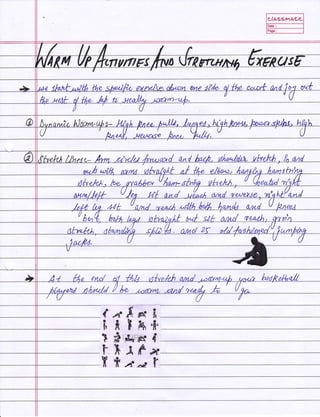 classmate
Date :
Page :
WARM UP ACTIVITIES AND STRETCHING EXERCISE
→ we start with the specific exercise down one side of the court and jog out
the rest of the lap to really warm-up.
① Dynamic Warm-ups:- High knee pulls, lunges, high knee power skips, high
knees, reverse knee pulls.
② Stretch lines:- Arm circles forward and back, shoulder stretch, in and
out with arms straight at the elbow, hanging hamstring
stretch, toe grabber ham-string stretch, seated right
over/left leg sit and reach and reverse, right and
left leg sit and reach with both hands and knees
both legs straight out sit and reach, groin
stretch, standing and 25 old fashioned jumping
jacks.
→ At the end of this stretch and warm-up your basketball
players should be warm and ready to go